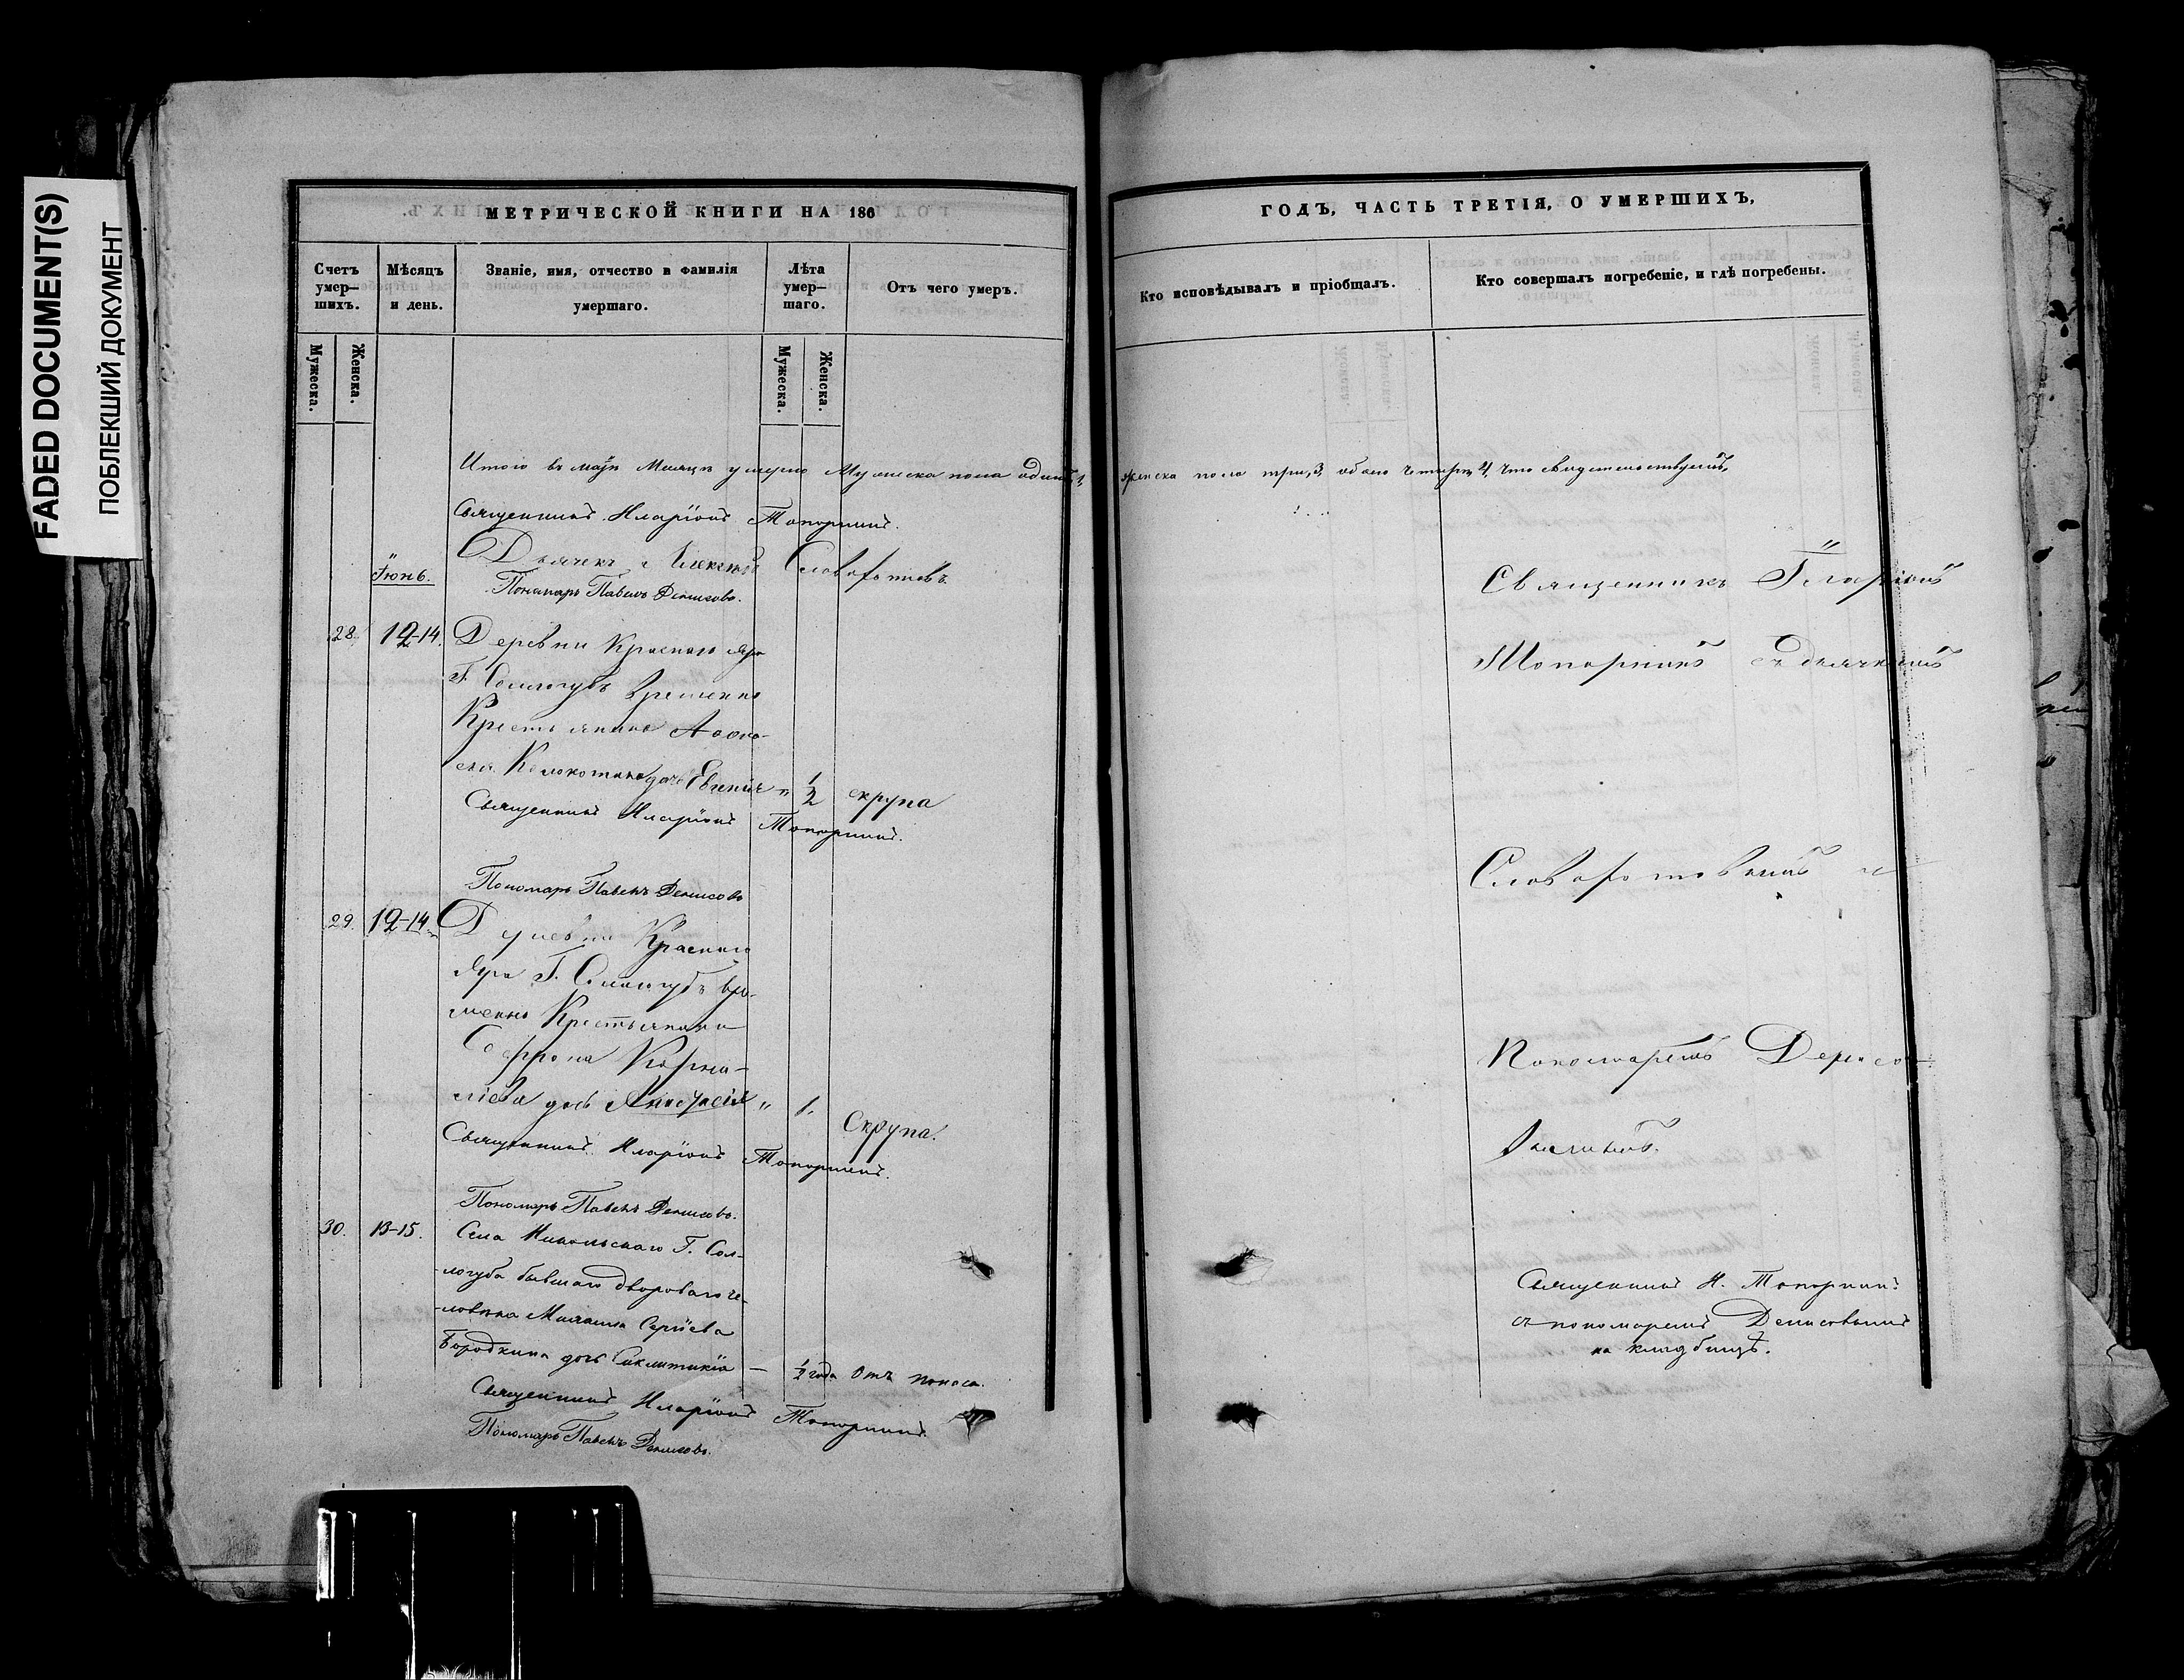 FADED DOCUMENT(S)
ПОБЛЕКШИЙ ДОКУМЕНТ
МЕТРИЧЕСКОЙ КНИГИ НА 186
Счетъ умер–шихъ.
Мѣсяцъ и день.
Званіе, имя, отчество и фамилія умершаго.
Лѣта умер–шаго.
Отъ чего умеръ.
Мужеска.
Женска.
Мужеска.
Женска.
Итого въ маѣ месяцѣ умерло Мужеска пола одинъ 1,
Священникъ Иларіонъ Топорнинъ.
Дьячекъ Алексѣй Словохотовъ
Іюнь.
Пономарь Павелъ Денисовъ.
28. 12-14. Деревни Краснаго Яра
Г. Соллогубъ временно
Крестьянина Афона-
сія дочь Евгенія „ 1/2 скрупа
Священникъ Иларіонъ Топорнинъ.
Пономарь Павелъ Денисовъ
29. 12-14. Деревни Краснаго
Яра Г. Соллогубъ вре-
менно Крестьянина
Софрона Корни-
ліева дочь Анастасія „ 1. Скрупа.
Священникъ Иларіонъ Топорнинъ.
Пономарь Павелъ Денисовъ.
30. 13-15. Села Никольскаго Г. Сол-
логуба бывшаго двороваго че-
ловѣка Михаила Сергіева
Бородкина дочь Синклитикія — 1/2 года Отъ поноса.
Священникъ Иларіонъ Топорнинъ.
Пономарь Павелъ Денисовъ.
ГОДЪ, ЧАСТЬ ТРЕТІЯ, О УМЕРШИХЪ,
Кто исповѣдывалъ и пріобщалъ.
Кто совершалъ погребеніе, и гдѣ погребены.
женска пола три, 3, обоего четыре 4, что свидетельствуемъ,
Священникъ Іларіонъ
Топорнинъ съ дьячкомъ
Словохотовымъ и
Пономаремъ Денисо-
Священникъ И. Топорнинъ
съ пономаремъ Денисовымъ
на кладбищѣ.